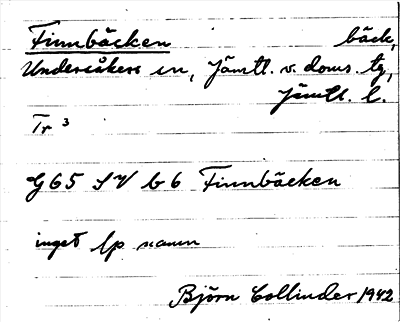 Finnbäcken bäck,
Undersåkers sn, Jämtl. v. doms. tg,
Jämtl. l.
Tr 3
G65 SV b6 Finnbäcken
inget lp namn
Björn Collinder 1942